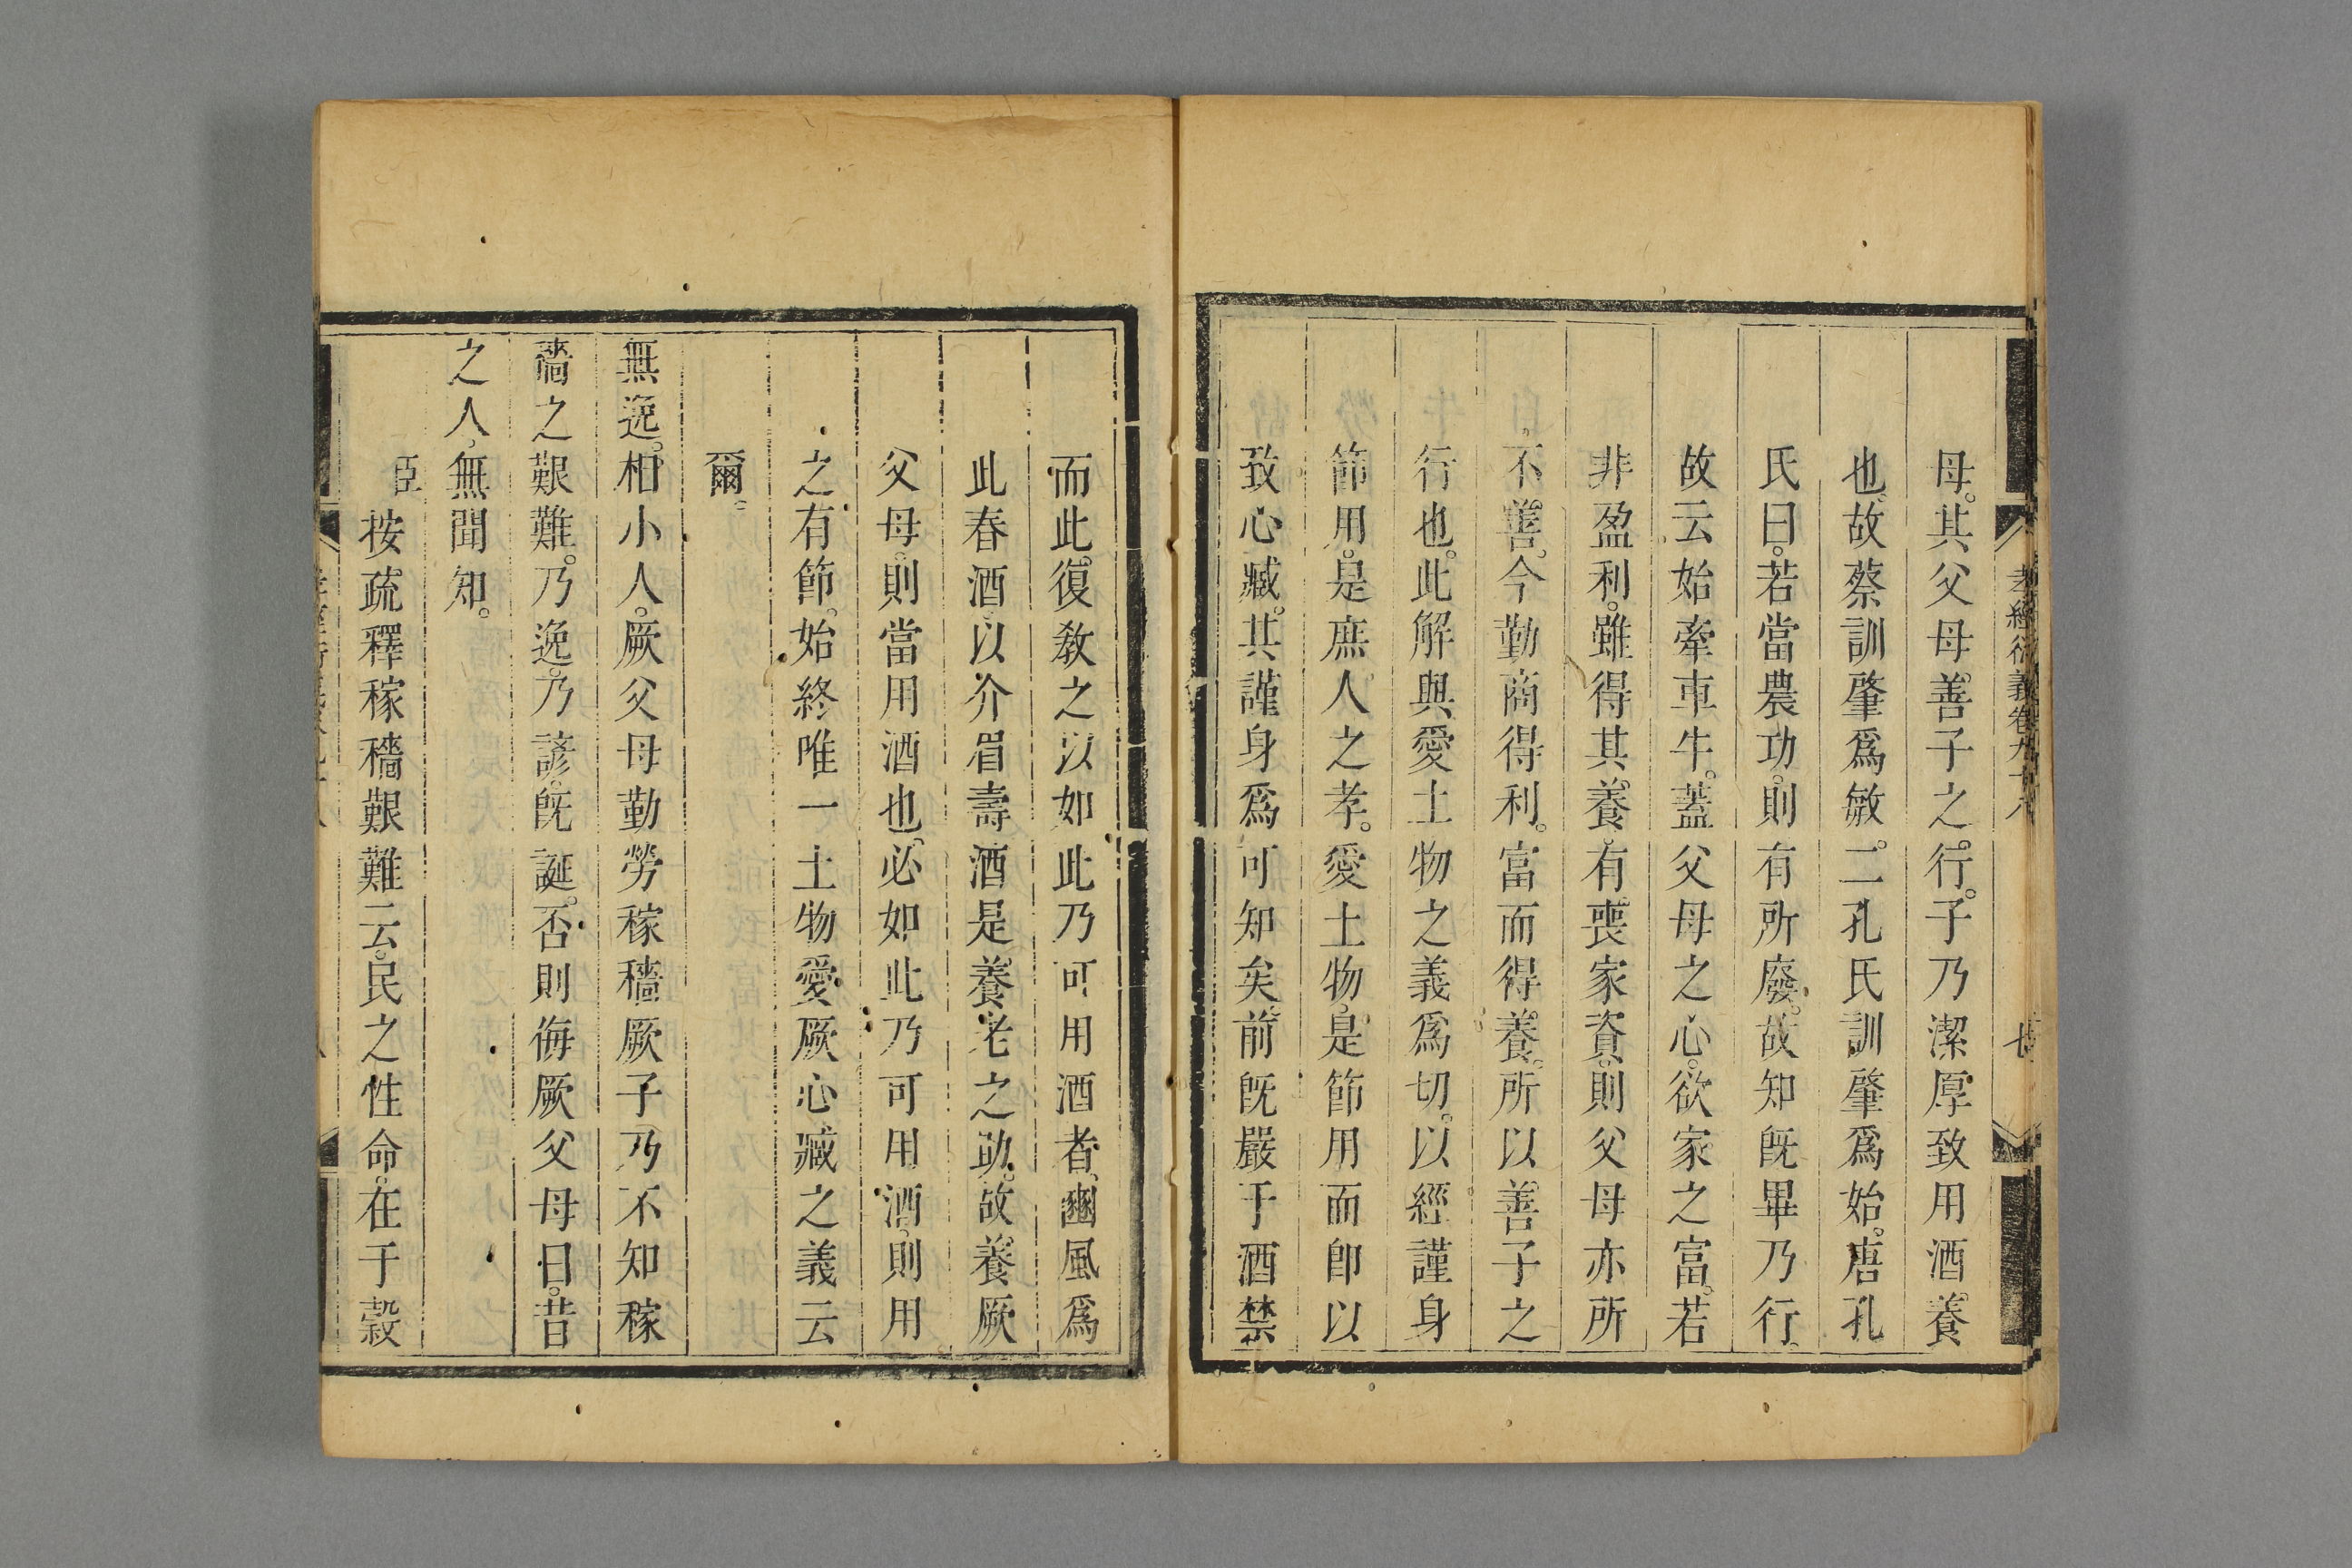 孝經衍義卷九十八
母。其父母善子之行。子乃潔厚致用酒養
也。故蔡訓肇爲敏。二孔氏訓肇爲始。唐孔
氏曰。若當農功。則有所廢。故知旣畢乃行
故云始牽車牛。蓋父母之心。欲家之富。若
非盈利。雖得其養。有喪家資。則父母亦所
不善。今勤商得利。富而得養。所以善子之
行也。此解與愛土物之義爲切。以經謹身
節用。是庶人之孝。愛土物。是節用而卽以
致心臧。其謹身爲可知矣。前旣嚴于酒禁
而此。復敎之以如此乃可用酒者。豳風爲
此春酒。以介眉壽。酒是養老之助。故養厥
父母。則當用酒也。必如此乃可用酒。則用
之有節。始終唯一土物愛厥心臧之義云
爾。
無逸。相小人。厥父母勤勞稼穡厥子乃不知稼
穡之艱難。乃逸。乃諺。旣誕。否則侮厥父母曰。昔
之人。無聞知。
臣按疏釋稼穡艱難云。民之性命。在于穀